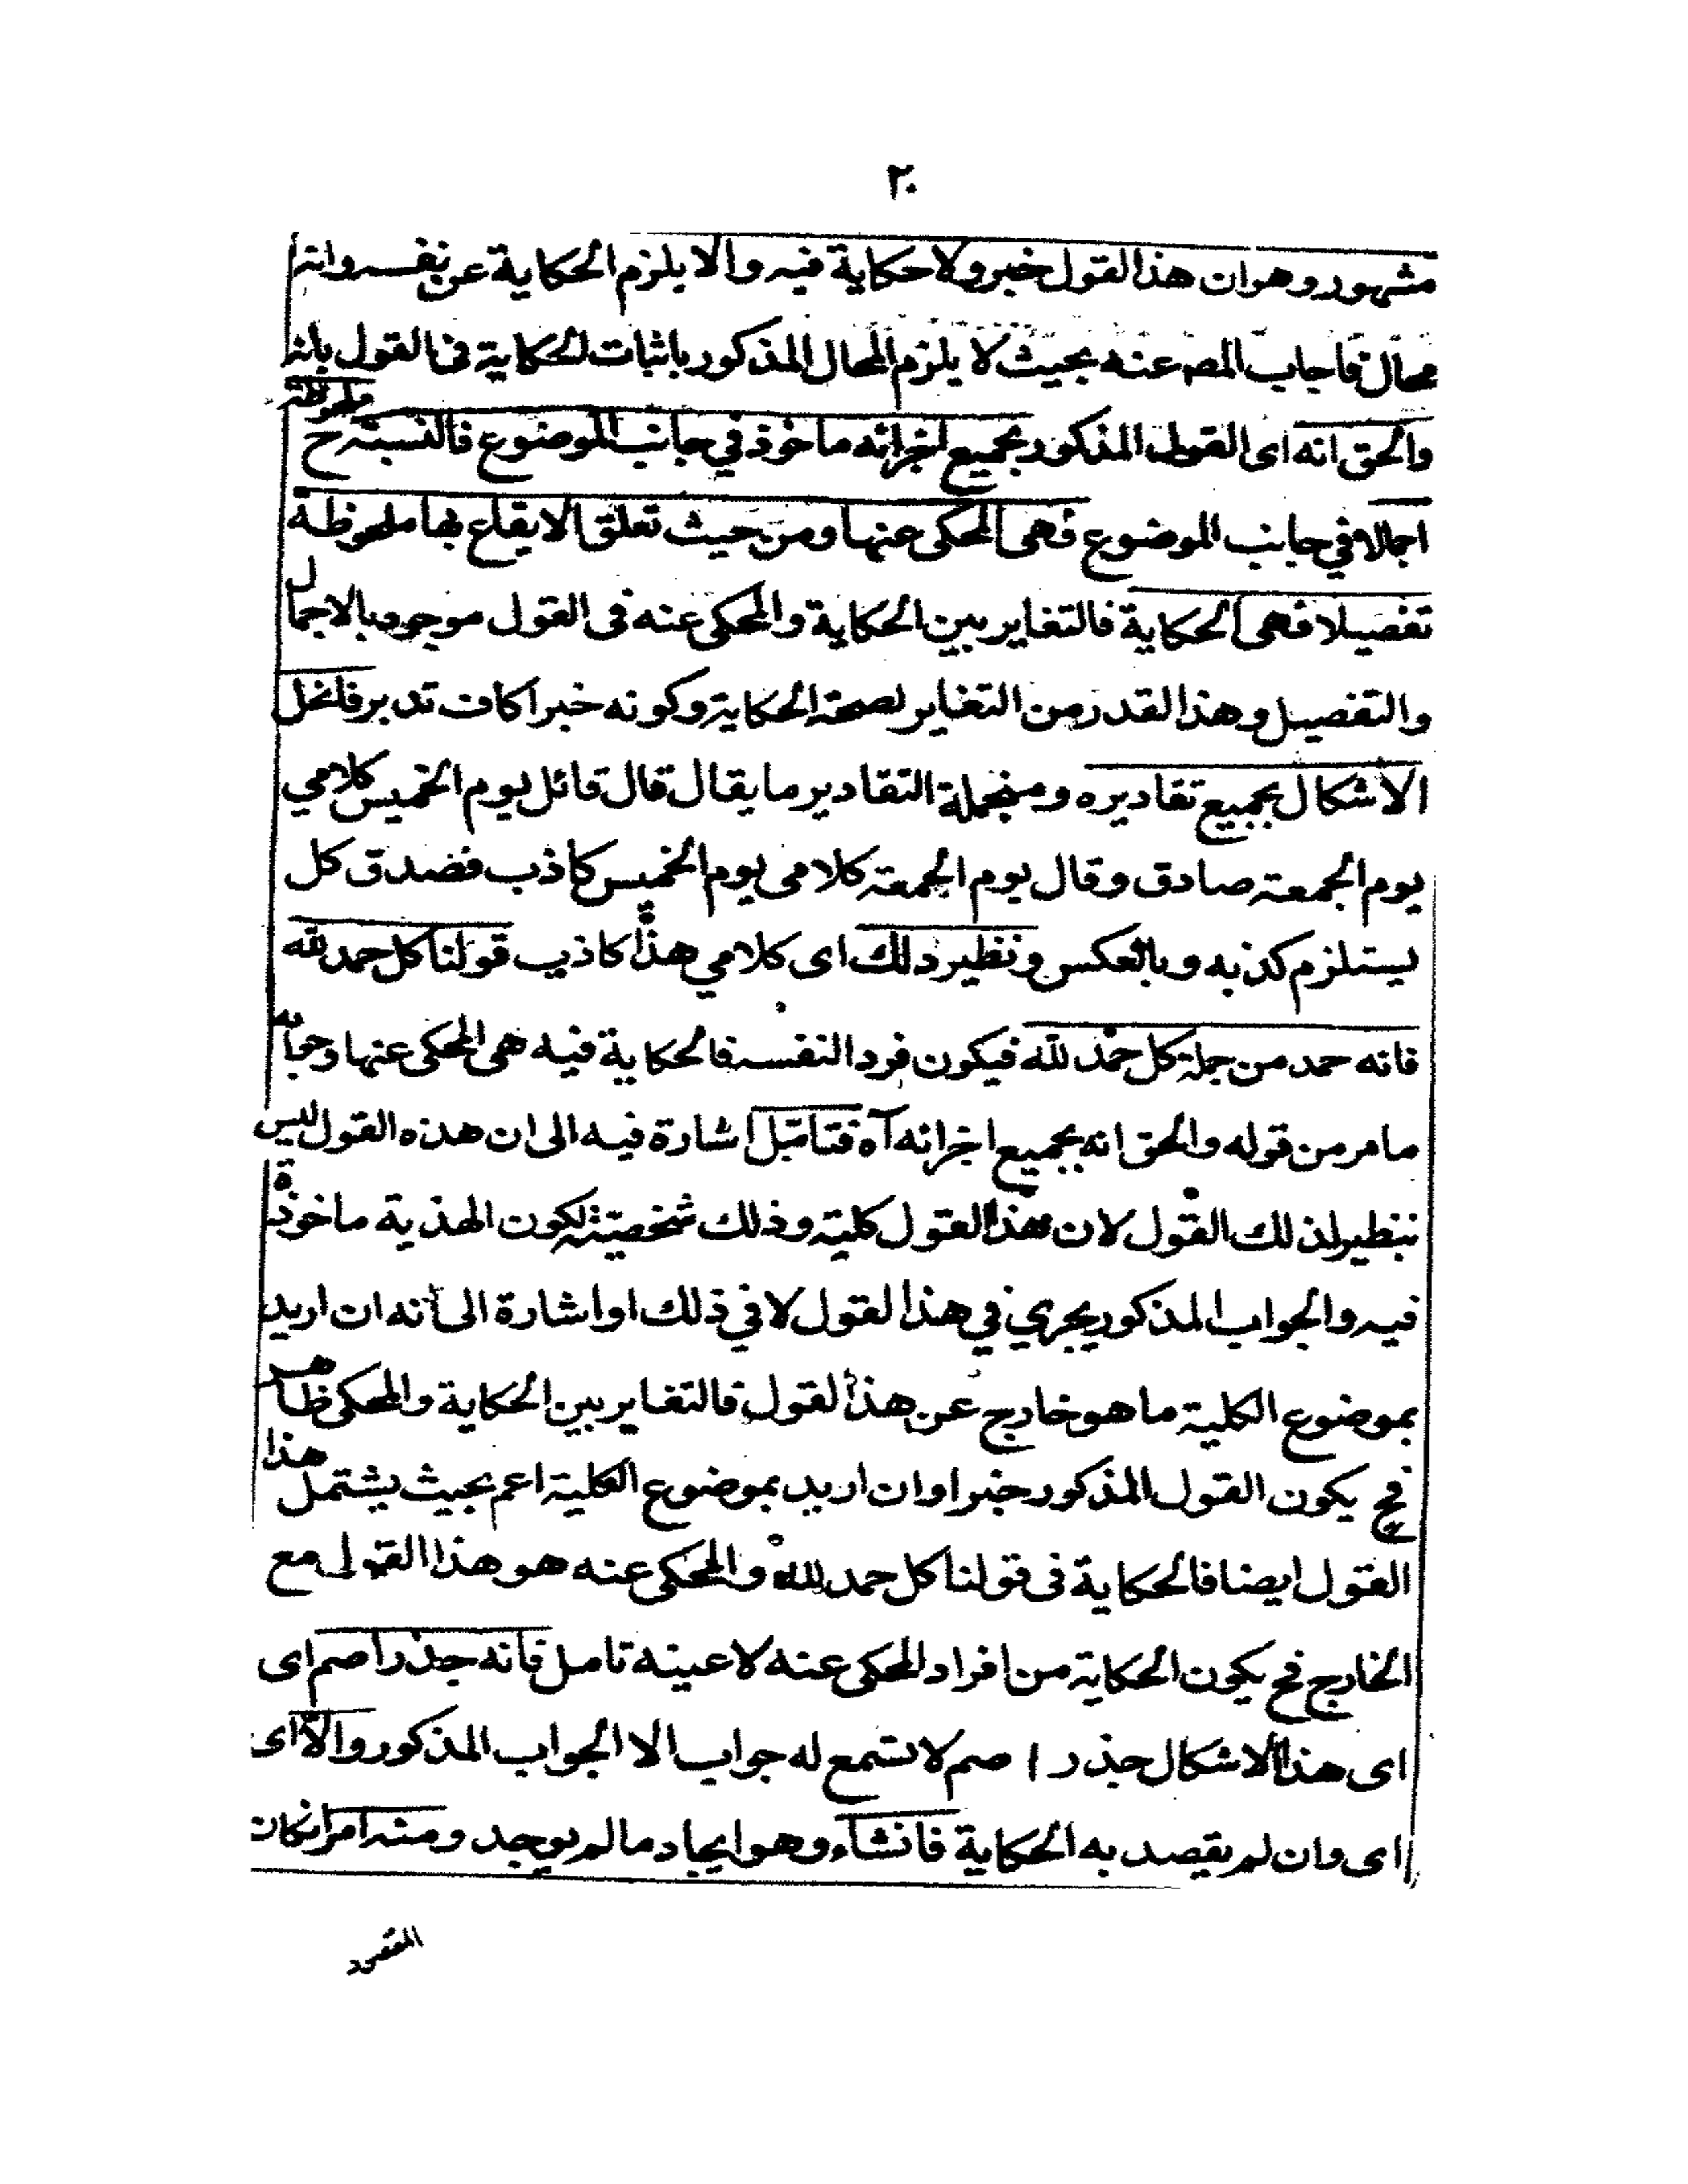 ٢٠
مشهور وهو ان هذا القول خبر ولا حكاية فيه والا يلزم الحكاية عن نفسه وانه
محال فاجاب المصه عنه بحيث لا يلزم المحال المذكور باثبات الحكاية فى القول بانه
والحق انه اى القول المذكور بجميع اجزائه ماخوذ في جانب الموضوع فالنسبة ح ملحوظة
اجمالا في جانب الموضوع فهى المحكى عنها ومن حيث تعلق الايقاع بها ملحوظة
تفصيلا فهى الحكاية فالتغاير بين الحكاية والمحكى عنه فى القول موجود بالاجمال
والتفصيل وهذا القدر من التغاير لصحة الحكاية وكونه خبرا كاف تدبر فانحل
الاشكال بجميع تقاديره ومنجملة التقادير ما يقال قال قائل يوم الخميس كلامي
يوم الجمعة صادق وقال يوم الجمعة كلامى يوم الخميس كاذب فصدق كل
يستلزم كذبه وبالعكس ونظير ذلك اى كلامي هذا كاذب قولنا كل حمد لله
فانه حمد من جملة كل حمد لله فيكون فردا لنفسه فالحكاية فيه هى المحكى عنها وجوابه
ما مر من قوله والحق انه بجميع اجزائه آه فتامل اشارة فيه الى ان هذه القول ليس
بنظير لذلك القول لان هذا القول كلية وذلك شخصية لكون الهذية ماخوذة
فيه والجواب المذكور يجري في هذا القول لا في ذلك او اشارة الى انه ان اريد
بموضوع الكلية ما هو خارج عن هذا القول فالتغاير بين الحكاية والمحكى ظاهر
فح يكون القول المذكور خبرا وان اريد بموضوع الكلية اعم بحيث يشتمل هذا
القول ايضا فالحكاية فى قولنا كل حمد لله والمحكى عنه هو هذا القول مع
الخارج فح يكون الحكاية من افراد المحكى عنه لا عينه تامل فانه جذر اصم اى
اى هذا الاشكال جذر اصم لا تسمع له جواب الا الجواب المذكور والا اى
اى وان لم يقصد به الحكاية فانشاء وهو ايجاد ما لم يوجد ومنه امر ان كان
المقصود